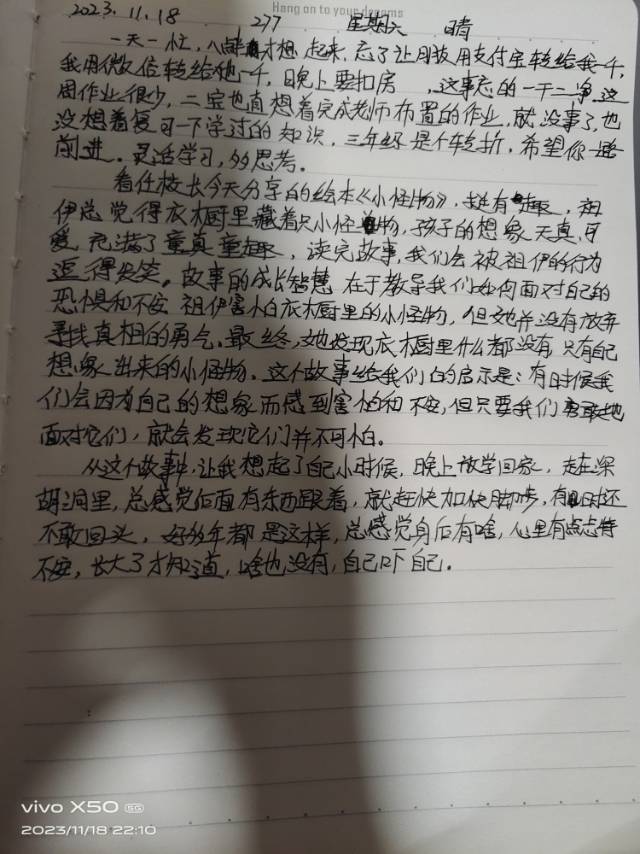 Hang on to your dreams
2023.11.18 277 星期六 晴
一天一忙,八点半才想起来,忘了让朋友用支付宝转给我一千,
我用微信转给他一千,晚上要扣房,这事忘的一干二净,这
周作业很少,二宝也直想着完成老师布置的作业,就没事了,也
没想着复习一下学过的知识,三年级是个转折,希望你一路
前进。灵活学习,多思考。
看任校长今天分享的绘本《小怪物》,挺有趣,祖
伊总觉得衣橱里藏着只小怪物,孩子的想象天真,可
爱,充满了童真童趣,读完故事,我们会被祖伊的行为
逗得发笑。故事的成长智慧在于教导我们如何面对自己的
恐惧和不安,祖伊害怕衣橱里的小怪物,但她并没有放弃
寻找真相的勇气。最终,她发现衣橱里什么都没有,只有自己
想象出来的小怪物。这个故事给我们的启示是:有时候我
们会因为自己的想象而感到害怕和不安,但只要我们勇敢地
面对它们,就会发现它们并不可怕。
从这个故事中,让我想起了自己小时候,晚上放学回家,走在深
胡洞里,总感觉后面有东西跟着,就赶快加快脚步,有时还
不敢回头,好多年都是这样,总感觉身后有啥,心里有点忐特
不安,长大了才知道,啥也没有,自己吓自己。
vivo X50 5G
2023/11/18 22:10